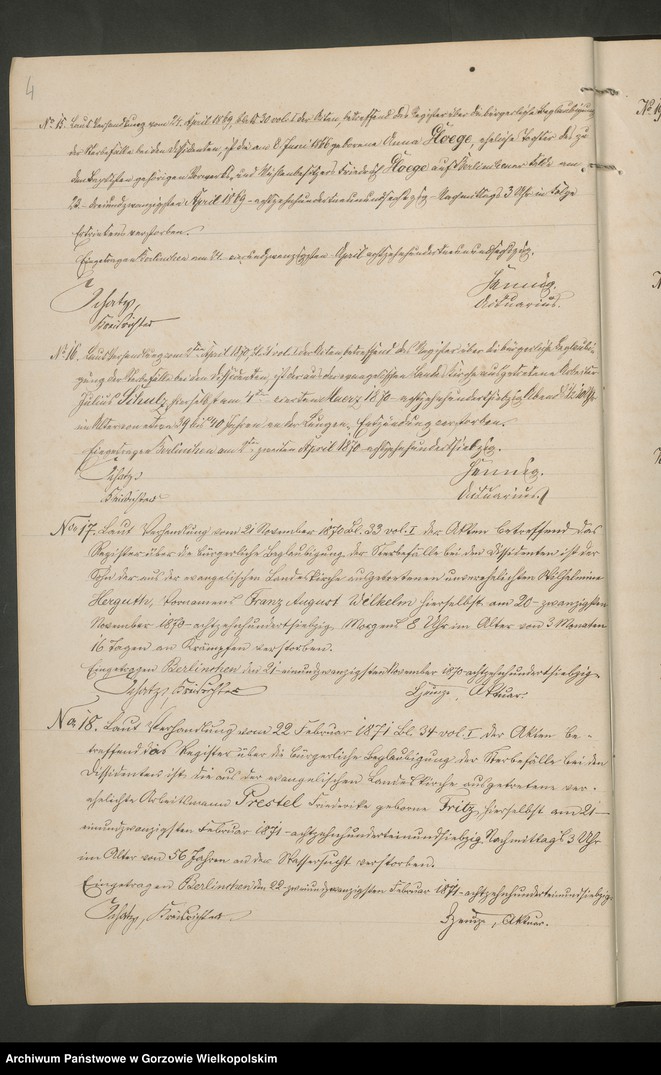 4
No 15. Laut Verhandlung vom 24. April 1869, Blatt 30 vol. I der Akten, betreffend das Register über die bürgerliche Beglaubigung
der Sterbefälle bei den Dissidenten, ist die am 8. Juni 1866 geborene Anna Kloege, eheliche Tochter des zu
gehörigen Vorwerks- und Friedrich Kloege auf Berlinchener Felde am
23 - dreiundzwanzigsten April 1869 - achtzehnhundertneunundsechszig - Nachmittags 3 Uhr in Folge
verstorben.
Eingetragen Berlinchen am 24 - vierundzwanzigsten April achtzehnhundertneunundsechszig.
Schatz, Hennig.
Kreisrichter Actuarius.
No 16. Laut Verhandlung vom 2ten April 1870, vol. I der Akten, betreffend das Register über die bürgerliche Beglaubi-
gung der Sterbefälle bei den Dissidenten, ist der aus der evangelischen Landeskirche ausgetretene
Julius Schulz, hierselbst am - März 1870 - achtzehnhundertsiebzig Abends Uhr
im Alter von 39 bis 40 Jahren an der Lungen-Entzündung verstorben.
Eingetragen Berlinchen am 2ten zweiten April 1870 achtzehnhundertsiebzig.
Schatz Hennig.
Kreisrichter Actuarius
No 17. Laut Verhandlung vom 21 November 1870 Bl. 33 vol. I der Akten betreffend das
Register über die bürgerliche Beglaubigung der Sterbefälle bei den Dissidenten ist der
Sohn der aus der evangelischen Landeskirche ausgetretenen unverehelichten Wilhelmine
Hergutte, Vornamens Franz August Wilhelm hierselbst am 20 - zwanzigsten
November 1870 - achtzehnhundertsiebzig, Morgens 8 Uhr im Alter von 3 Monaten
16 Tagen an Krämpfen verstorben.
Eingetragen Berlinchen den 21 - einundzwanzigsten November 1870 - achtzehnhundertsiebzig.
Schatz, Kreisrichter Aktuar.
No 18. Laut Verhandlung vom 22 Februar 1871 Bl. 34 vol. I der Akten be-
treffend das Register über die bürgerliche Beglaubigung der Sterbefälle bei den
Dissidenten ist die aus der evangelischen Landeskirche ausgetretene ver-
ehelichte Arbeitsmann Prestel Friederike geborne Fritz, hierselbst am 21 -
einundzwanzigsten Februar 1871 - achtzehnhunderteinundsiebzig Nachmittags 3 Uhr
im Alter von 56 Jahren an der Wassersucht verstorben.
Eingetragen Berlinchen den 22 - zweiundzwanzigsten Februar 1871 - achtzehnhunderteinundsiebzig.
Schatz, Kreisrichter Aktuar.
Archiwum Państwowe w Gorzowie Wielkopolskim